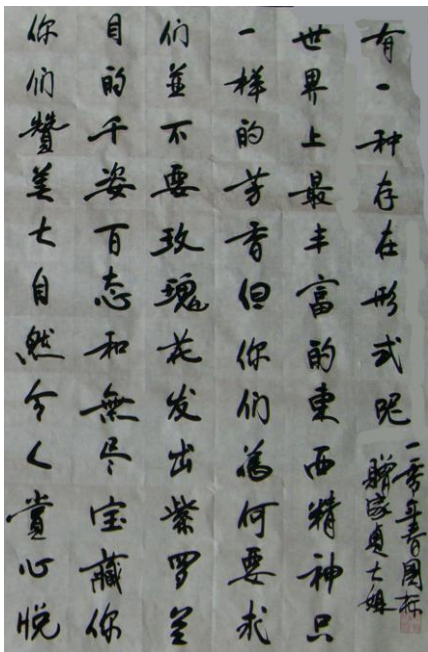 你们贊美大自然令人賞心悦
目的千姿百态和無尽宝藏你
们並不要玫瑰花发出紫罗兰
一样的芳香但你们為何要求
世界上最丰富的東西精神只
有一种存在形式呢
贈家貞大姐
一零年春国标